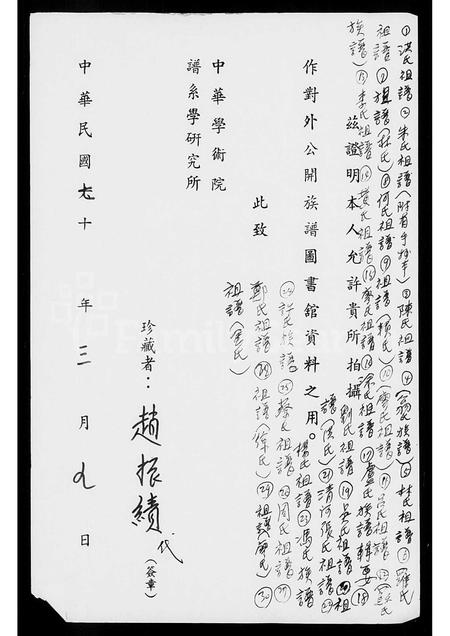 ①洪氏祖譜②朱氏祖譜(附有手抄本)③陳氏祖譜④(翁族譜)⑤林氏祖譜⑥(羅氏
祖譜)⑦祖譜(林氏)⑧何氏祖譜⑨祖譜(賴氏)⑩(廖氏祖譜)⑪呂氏祖譜
族譜)⑬李氏祖譜⑭黃氏祖譜⑮廖氏祖譜⑯涂氏祖譜⑰盧氏族譜輯要⑱
茲證明本人允許貴所拍攝
劉氏祖譜⑲吳氏祖譜⑳祖
譜(洪氏)㉑清河張氏祖譜㉒
作對外公開族譜圖書館資料之用。
楊氏祖譜㉓馮氏族譜
㉔許氏族譜㉕蔡氏祖譜㉖周氏祖譜㉗
此致
鄭氏祖譜㉘祖譜(徐氏)㉙祖譜(廖氏)㉚
祖譜(余氏)
中華學術院
譜系學研究所
珍藏者：趙振績代(簽章)
中華民國七十年三月九日
FamilySearch